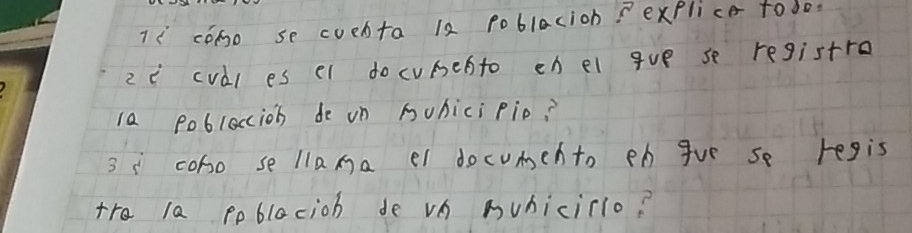 1¿ cómo se cuenta la poblacion? explica todo.
2¿ cuál es el documento en el que se registra
la poblacción de un municipio?
3¿ como se llama el documento en que se regis
tra la poblacion de un municirlo?